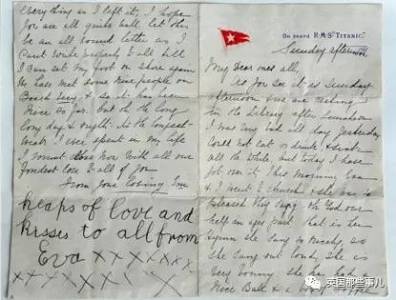 On board R.M.S. "TITANIC."
Sunday afternoon
My dear ones all,
As you see it is Sunday
afternoon & we are resting
in the library after luncheon
I was very bad all day yesterday
could not eat or drink & sick
all the while, but today I have
got over it This morning Eva
& I went to church & she was so
pleased they sang Oh God our
help in ages past that is her
Hymn she sang so nicely, so
she sang out loud, she is
very bonny she has had a
nice Ball & a box of
everything as I left it, I hope
you are all quite well let this
be an all round letter as I
can't write properly to all till
I can set my foot on shore again
We have met some nice people on
Board Lucy & so it has been
nice so far. But oh the long
long days & nights its the longest
break I ever spent in my life
I must close now with all our
fondest love to all of you
From your loving
heaps of love and
kisses to all from
Eva
x x x x x x x
x x x x x x x
英国那些事儿